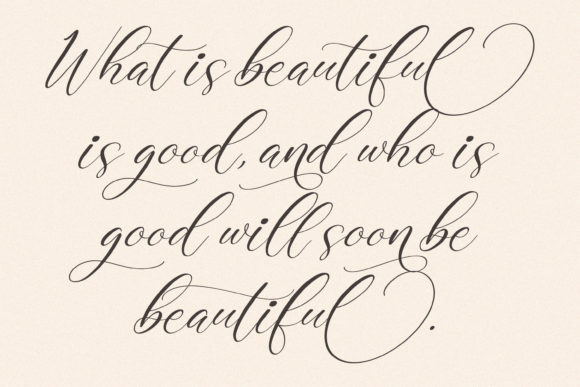 What is beautiful
is good, and who is
good will soon be
beautiful.